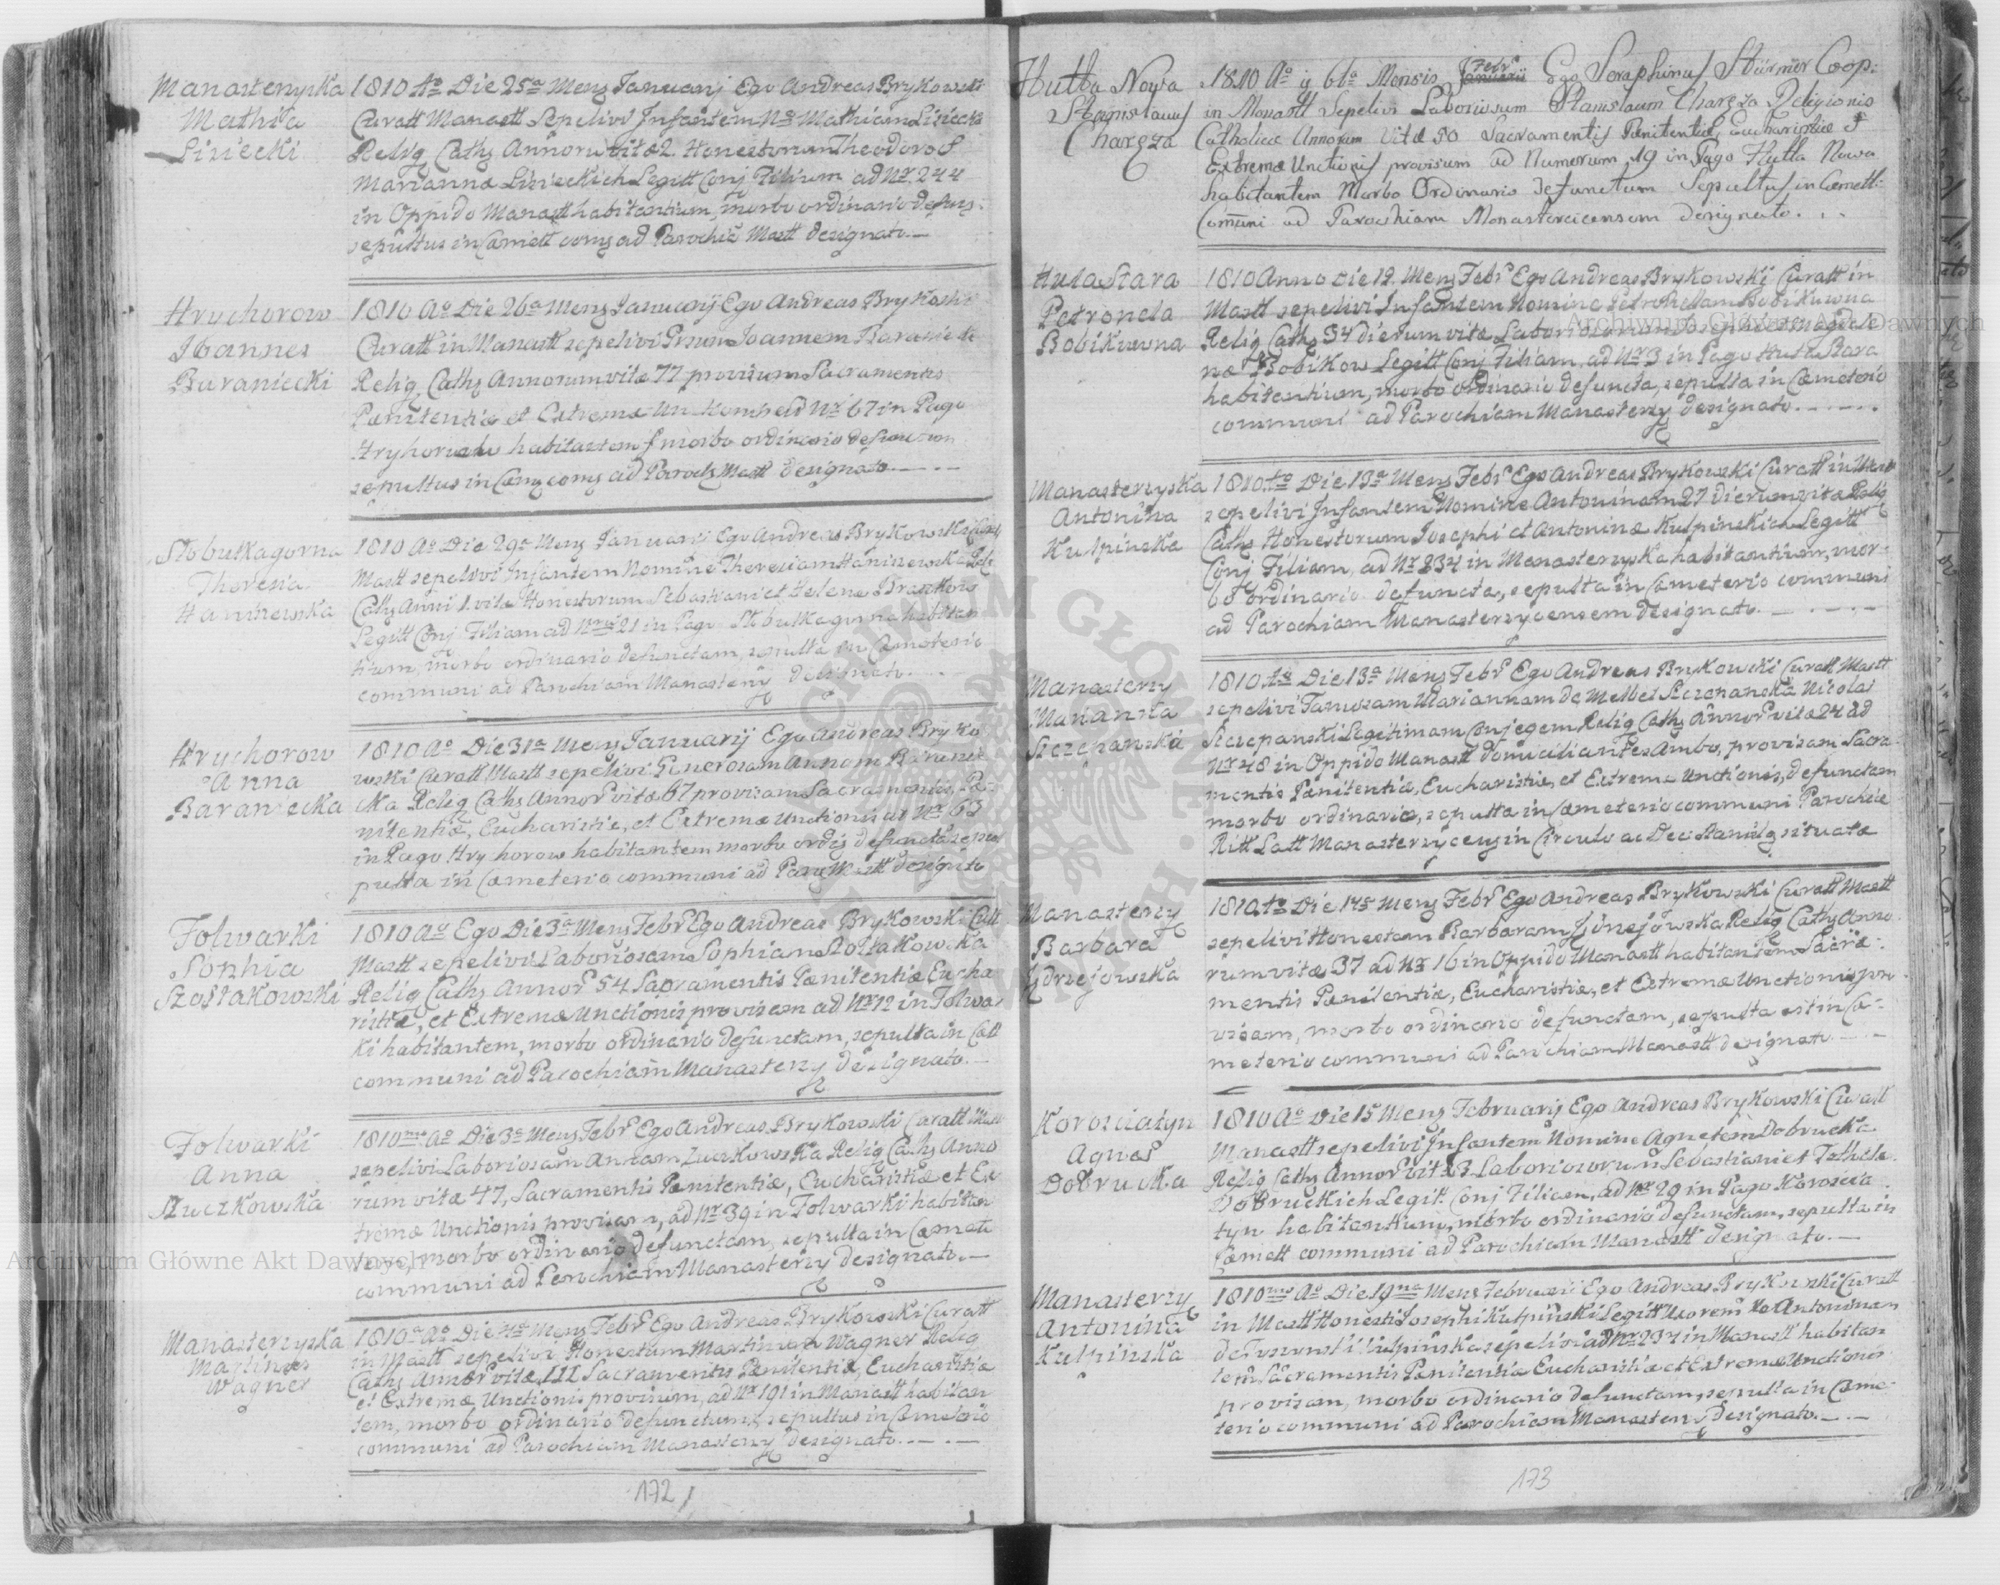 Manasterzyska
Mathia
Lisiecki
1810 Ao Die 25a Mens Januarij Ego Andreas Brykowski
Curatt Manastt Sepelivi Infantem Ne Mathiam Lisiecki
Relig Cath Annoru vitæ 2. Honestorum Theodoro &
Mariannæ Lisieckich Legitt Conj Filium ad Nr 244
in Oppido Manastt habitantium, morbo ordinario defuns.
sepultus in Cæmett coms ad Parochiæ Mastt designato.—
Hrychorow
Joannes
Baraniecki
1810 Ao Die 26a Mens Januarij Ego Andreas Brykoski
Curatt in Manastt sepelivi Joannem Baraniecki
Relig Caths Annorum vitæ 77 provisum Sacramentis
Pænitentiæ et Extremæ Unctionis ad Nr 67 in Pago
Hryhorow habitantem morbo ordinario defunctum
sepultus in Cæm coms ad Paroch Mastt designato.
Slobutkagorna
Theresia
Haniszewska
1810 Ao Die 29a Mens Januarij Ego Andreas Brykowski Curatt
Mastt sepelivi Infantem Nomine Theresiam Haniszewska Relig
Caths Anni 1. vitæ Honestorum Sebastiani et Helenæ
Legitt Conj Filiam ad Nr 21 in Pago Slobutkagorna habitan
tium, morbo ordinario defunctam, sepulta in Cæmeterio
communi ad Parochiam Manasterzy designato.
Hrychorow
Anna
Baraniecka
1810 Ao Die 31a Mens Januarij Ego Andreas Bryko
wski Curatt Mastt sepelivi Generosam Annam Baranie
cka Relig Caths Annor vitæ 67 provisam Sacramentis Pæ
nitentiæ, Eucharistiæ, et Extremæ Unctionis ad Nr 63
in Pago Hryhorow habitantem morbo ordis defuncta sepu
pulta in Cæmeterio communi ad Paro Mastt designato
Folwarki
Sophia
Szostakowski
1810 Ao Ego Die 3a Mens Febr Ego Andreas Brykowski Cutt
Mastt sepelivi Laboriosam Sophiam Szostakowska
Relig Caths Annor 54 Sacramentis Pænitentiæ Eucha
ristiæ, et Extremæ Unctionis provisam ad Nr 12 in Folwa
rki habitantem, morbo ordinario defunctam, sepulta in Catt
communi ad Parochiam Manasterzy designato.—
Folwarki
Anna
Szuczkowska
1810 mo Ao Die 3a Mens Febr Ego Andreas Brykowski Curatt Mastt
sepelivi Laboriosam Annam Relig Caths Anno
rum vitæ 47, Sacramentis Pænitentiæ, Eucharistiæ et Ex
tremæ Unctionis provisam, ad Nr 39 in Folwarki habitan
tem, morbo ordinario defunctam, sepulta in Cæmete
communi ad Parochiam Manasterzy designato.—
Manasterzyska
Martinus
Wagner
1810 Ao Die Mens Febr Ego Andreas Brykowski Curatt
in Mastt sepelivi Honestum Martinum Wagner Relig
Caths Annor vitæ Sacramentis Pænitentiæ, Eucharistiæ
et Extremæ Unctionis provisum, ad Nr 191 in Manastt habitan
tem, morbo ordinario defunctum, sepultus in Cæmeterio
communi ad Parochiam Manasterzy designato.
172
Hutta Nowa
Stanislaus
Chargza
1810 Ao y 6ta Mensis Febr Januarii Ego Seraphinus Stürmer Coop:
in Monastt Sepelivi Laboriosum Stanislaum Chargza Religionis
Catholicæ Annorum Vitæ 50 Sacramentis Pænitentiæ, Eucharistiæ &
Extremæ Unctionis provisum ad Numerum 19 in Pago Hutta Nowa
habitantem Morbo Ordinario defunctum Sepultus in Cæmett:
Comuni ad Parochiam Monastercicensem designato. . .
Huta Stara
Petronela
Bobikuwna
1810 Anno Die 12. Mens Febr Ego Andreas Brykowski Curatt in
Mastt sepelivi Infantem Nomine Petronelam Bobikuwna
Relig Caths 34 Dierum vitæ Laboriosorum Josephi et Magdale
næ Bobikow Legitt Conj Filiam, ad Nr 3 in Pago Huta Stara
habitantium, morbo ordinario defuncta, sepulta in Cæmeterio
communi ad Parochiam Manasterzy designato.
Manasterzyska
Antonina
Kulpinska
1810 Ao Die 13a Mens Febr Ego Andreas Brykowski Curatt in Mastt
sepelivi Infantem Nomine Antoninam 27 dierum vitæ Relig
Caths Honestorum Josephi et Antoninæ Kulpinskich Legitt
Conj Filiam, ad Nr 234 in Manasterzyska habitantium, mor
bo ordinario defuncta, sepulta in Cæmeterio communi
ad Parochiam Manasterzycensem designato.
Manasterzy
Marianna
Szczepanska
1810 Ao Die 13a Mens Febr Ego Andreas Brykowski Curatt Mastt
sepelivi Mariannam de Szczepanska Nicolai
Szczepanski Legitimam Conjegem Relig Caths Annor vitæ 24 ad
Nr 48 in Oppido Manastt domiciliantes Ambo, provisam Sacra
mentis Pænitentiæ, Eucharistiæ, et Extremæ Unctionis, defunctam
morbo ordinario, sepulta in Cæmeterio communi Parochiæ
Ritt Latt Manasterzycens in Circulo ac Dec Stanisl situatæ
Manasterzy
Barbara
Jdrzejowska
1810 Ao Die 14 Mens Febr Ego Andreas Brykowski Curatt Mastt
sepelivi Honestam Barbaram Jdrzejowska Relig Caths Anno
rum vitæ 37 ad Nr 16 in Oppido Manastt habitantem Sacra-
mentis Pænitentiæ, Eucharistiæ, et Extremæ Unctionis pro
visam, morbo ordinario defunctam, sepulta est in Cæ-
meterio communi ad Parochiam Manastt designato.
Korosciatyn
Agnes
Dobrucka
1810 Ao Die 15 Mens Februarij Ego Andreas Brykowski Curatt
Manastt sepelivi Infantem Nomine Agnetem Dobrucka
Relig Caths Annor vitæ 3 Laboriosorum Sebastiani et Theklæ
Dobruckich Legitt Conj Filiam, ad Nr 29 in Pago Koroscia
tyn habitantium, morbo ordinario defunctam, sepulta in
Cæmett communi ad Parochiam Manastt designato.—
Manasterzy
Antonina
Kulpinska
1810 mo Ao Die 19 ma Mens Februarii Ego Andreas Brykowski Curatt
in Mastt Honesti Josephi Kulpinski Legitt Uxorem Antoninam
de Kulpinska sepelivi ad Nr 234 in Manastt habitan
tem Sacramentis Pænitentiæ Eucharistiæ et Extremæ Unctionis
provisam, morbo ordinario defunctam, sepulta in Cæme-
terio communi ad Parochiam Manasterzy designato.
173
Archiwum Główne Akt Dawnych
Archiwum Główne Akt Dawnych
ARCHIWUM GŁÓWNE